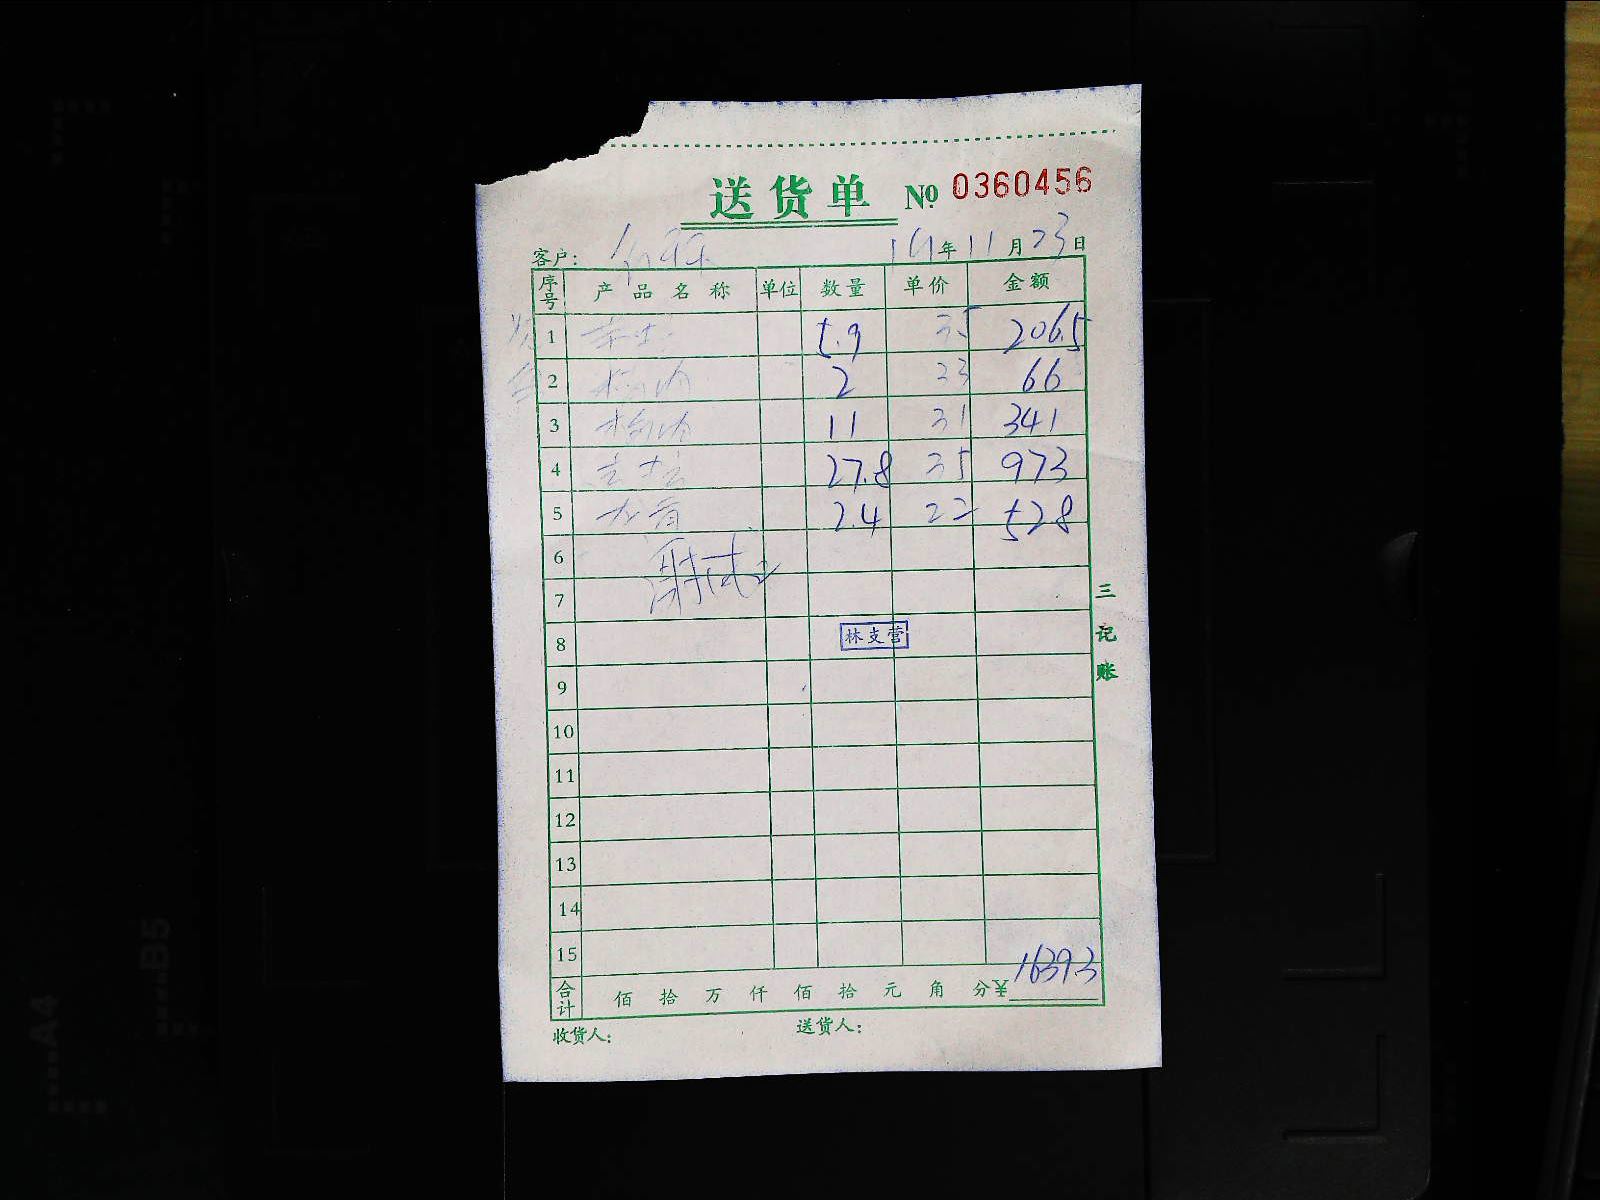 送货单 № 0360456
客户: 19年11月23日
序号 产品名称 单位 数量 单价 金额
1 5.9 35 206.5
2 2 33 66
3 11 31 341
4 27.8 35 973
5 2.4 22 528
6
7
8 林支营
9
10
11
12
13
14
15
合计 佰 拾 万 仟 佰 拾 元 角 分¥ 16393
收货人: 送货人:
三记账
A4
B5